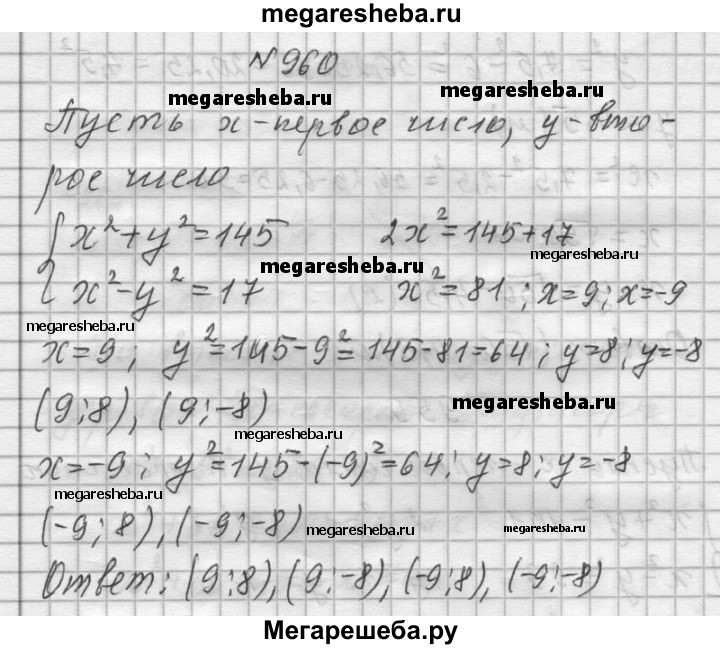 megaresheba.ru
№960
megaresheba.ru megaresheba.ru
Пусть x - первое число, y - вто-
рое число
{ x²+y²=145 2x²=145+17
megaresheba.ru megaresheba.ru
x²-y²=17 x²=81; x=9; x=-9
megaresheba.ru
x=9; y²=145-9²=145-81=64; y=8; y=-8
(9;8), (9;-8) megaresheba.ru
megaresheba.ru
x=-9; y²=145-(-9)²=64; y=8; y=-8
megaresheba.ru
(-9;8), (-9;-8) megaresheba.ru megaresheba.ru
Ответ: (9;8), (9;-8), (-9;8), (-9;-8)
Мегарешеба.ру